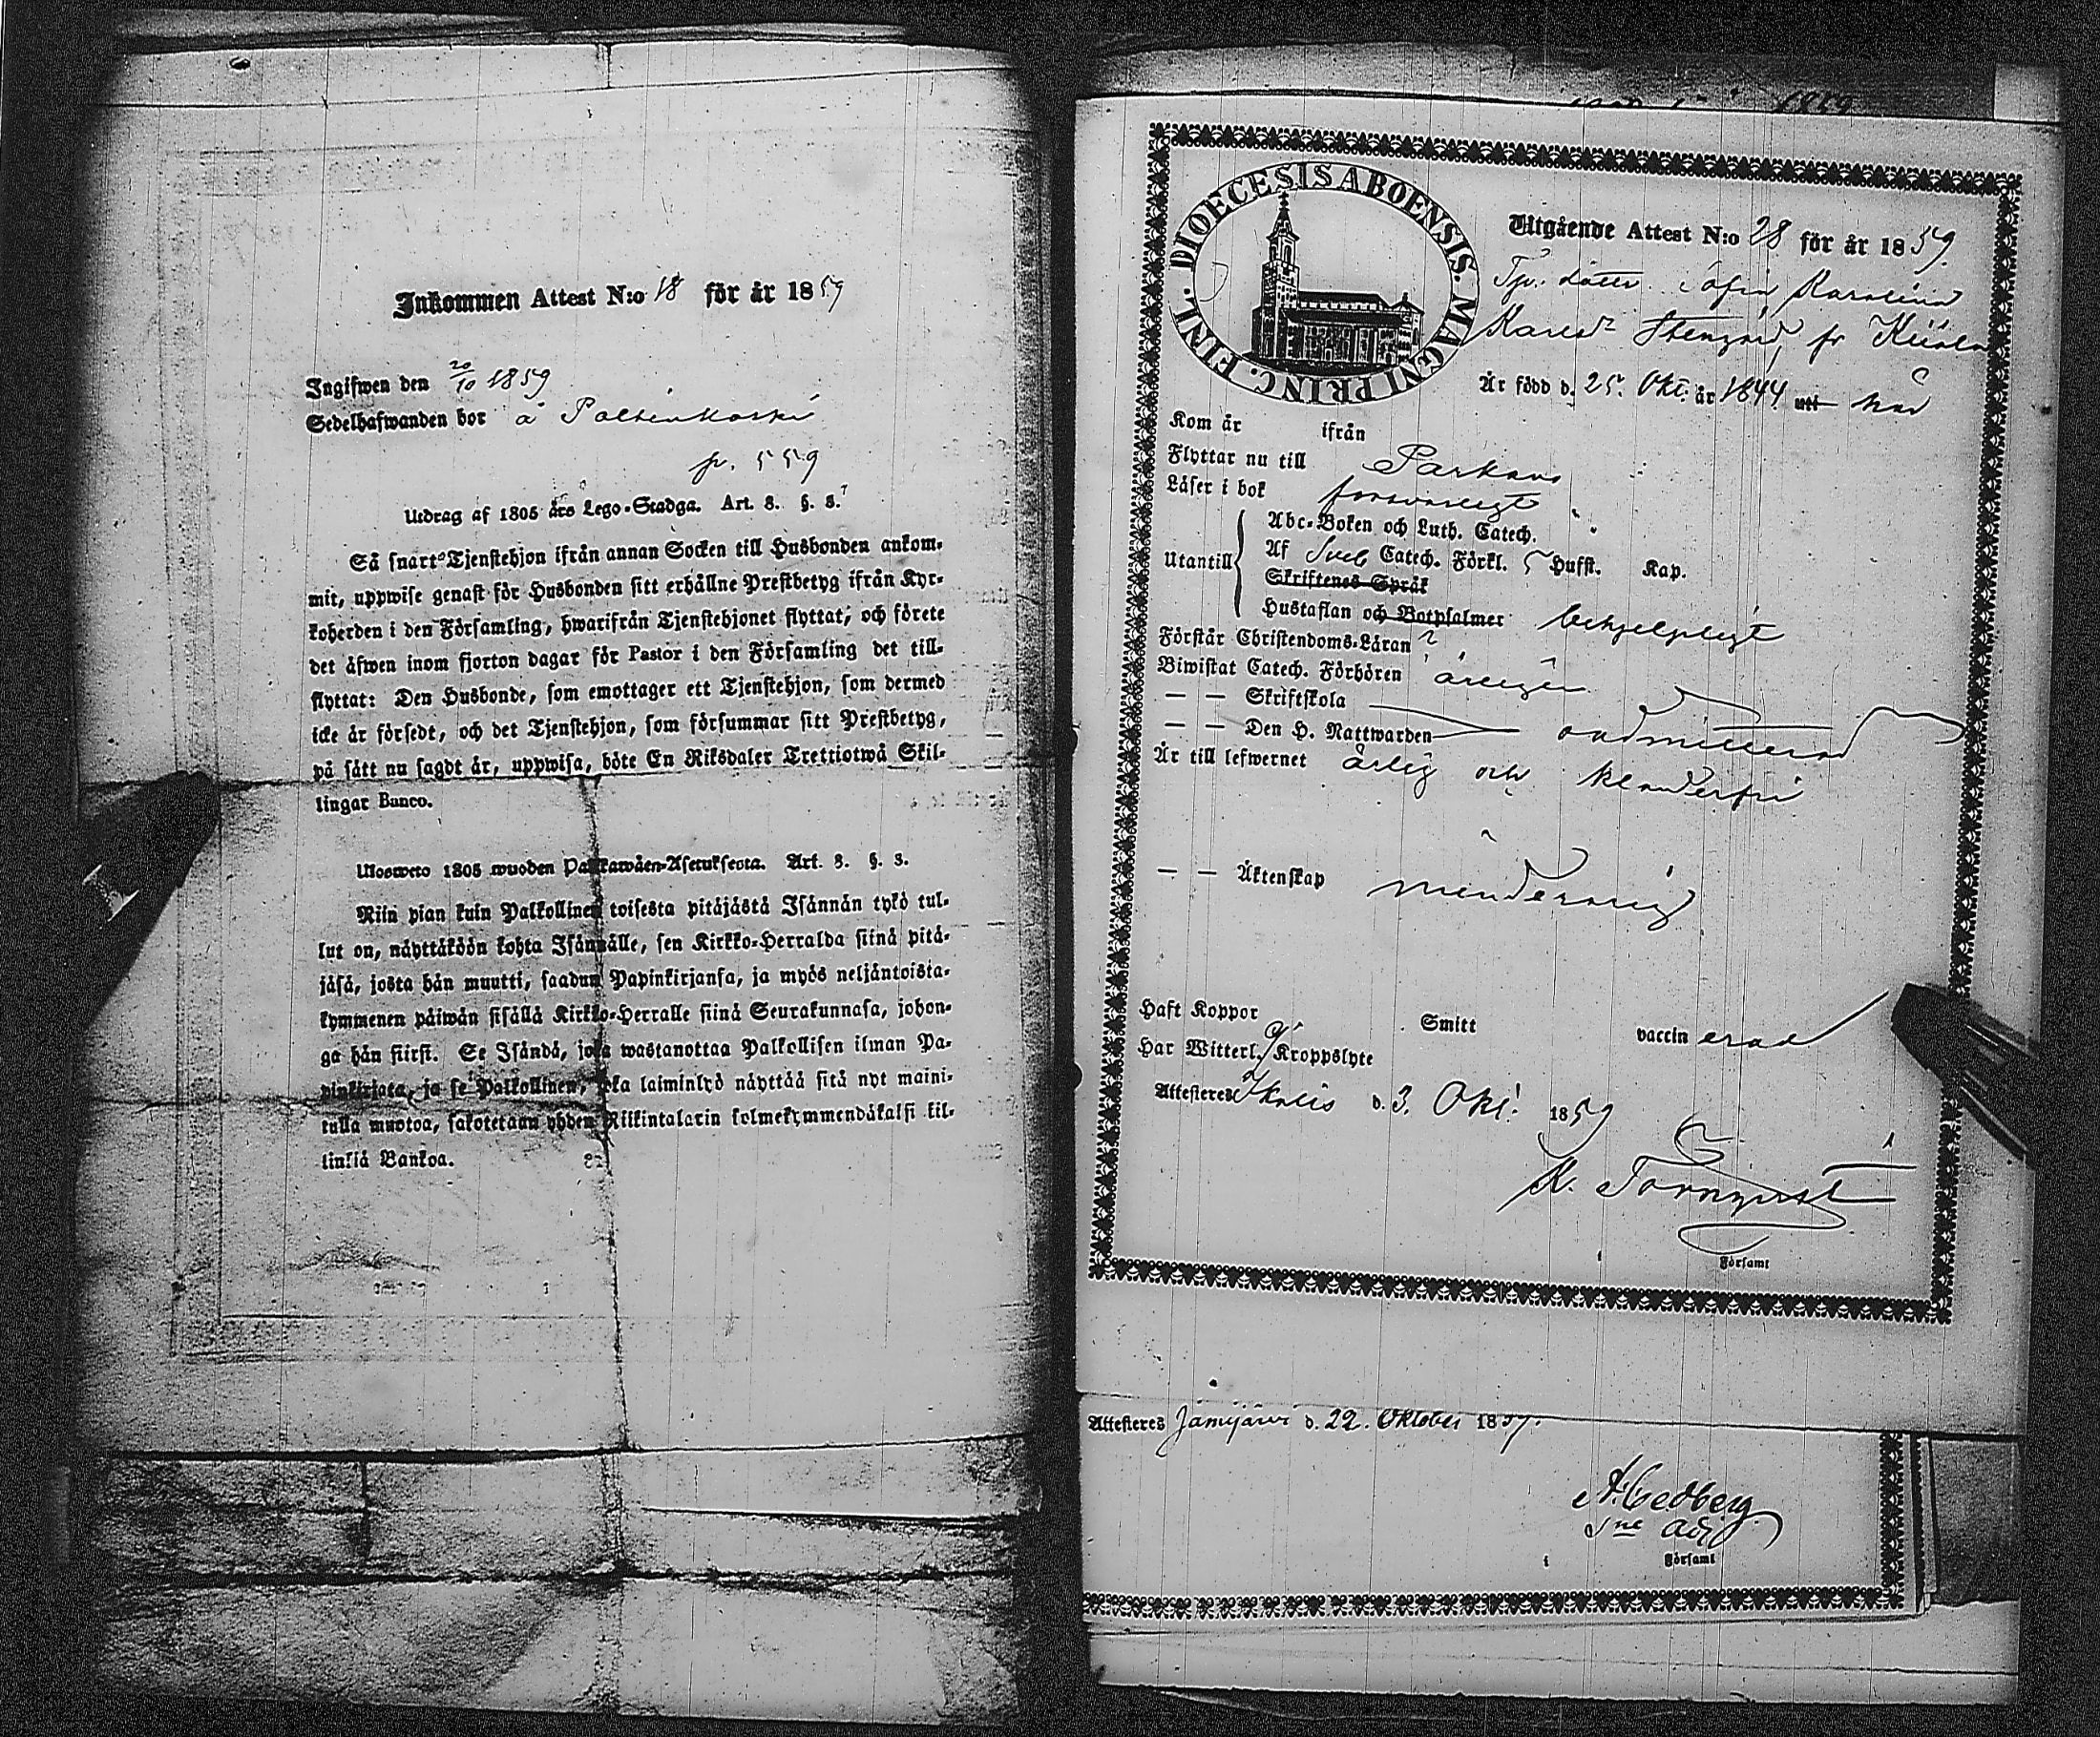 Inkommen Attest N:o 18 för år 1859
Ingifwen den 20/10 1859
Sedelhafwanden bor å
p. 559
Utdrag af 1805 års Lego-Stadga. Art. 8. §. 3.
Så snart Tjenstehjon ifrån annan Socken till Husbonden ankom-
mit, uppwise genast för Husbonden sitt erhållne Prestbetyg ifrån Kyr-
koherden i den Församling, hwarifrån Tjenstehjonet flyttat; och förete
det åfwen inom fjorton dagar för Pastor i den Församling det till-
flyttat: Den Husbonde, som emottager ett Tjenstehjon, som dermed
icke är försedt, och det Tjenstehjon, som försummar sitt Prestbetyg,
på sått nu sagdt år, uppwisa, böte En Riksdaler Trettiotwå Skil-
lingar Banco.
Ulosweto 1805 wuoden Palkkawåen-Asetuksesta. Art. 8. §. 3.
Niin pian kuin Palkollinen toisesta pitäjästä Isännän tykö tul-
lut on, näyttäköön kohta Isännälle, sen Kirkko-Herralda siinä pitä-
jäsä, josta hän muutti, saadun Papinkirjansa, ja myös neljäntoista-
kymmenen päiwän sisällä Kirkko-Herralle siinä Seurakunnasa, johon-
ga hän siirsi. Se Isändä, joka wastanottaa Palkollisen ilman Pa-
pinkirjata, ja se Palkollinen, joka laiminlyö näyttää sitä nyt maini-
tulla muotoa, sakotetaan yhden Riikintalarin kolmekymmendäkaksi kil-
linkiä Bankoa.
DIOECESIS ABOENSIS. MAGNI PRINC. FINL.
Utgående Attest N:o 28 för år 1859.
dotter Sofia Karolina
Är född d. 25 Okt. år 1844 uti här
Kom år ifrån
Flyttar nu till Parkano
Läser i bok försvarligt
Utantill Abc-Boken och Luth. Catech.
Af Sveb Catech. Förkl. 5 Hufst. Kap.
Skriftenes Språk
Hustaflan och Botpsalmer behjelpligt
Förstår Christendoms-Läran
Biwistat Catech. Förhören årligen
— — Skriftskola
— — Den H. Nattwarden oadmitterad
Är till lefwernet ärlig och klanderfri
— — Äktenskap minderårig
Haft Koppor Smitt vaccin erad
Har Witterl. Ej Kroppslyte
Attesteres Ikalis d. 3. Okt. 1859
K. Törnqvist
Församl
Attesteres Jämijärvi d. 22. Oktober 1859.
A. Cedberg
i Församl